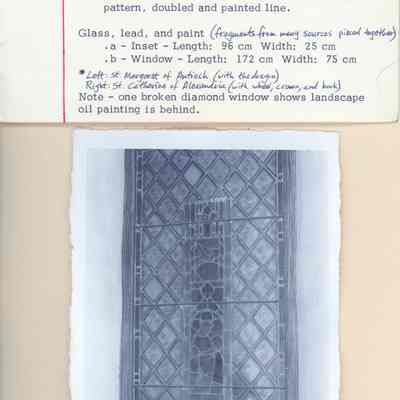 pattern, doubled and painted line.
Glass, lead, and paint (fragments from many sources pieced together)
.a - Inset - Length: 96 cm Width: 25 cm
.b - Window - Length: 172 cm Width: 75 cm
* Left: St. Margaret of Antioch (with the dragon)
Right: St. Catherine of Alexandria (with wheel, crown, and book)
Note - one broken diamond window shows landscape
oil painting is behind.